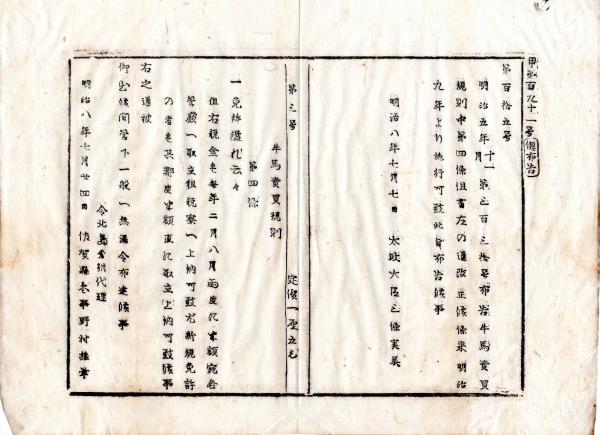 甲第百九十一号 県布告
第百拾五号
明治五年十一月第三百三拾号布告牛馬売買
規則中第四条但書左の通改正候条来明治
九年より施行可致此旨布告候事
明治八年七月七日 太政大臣三条実美
牛馬売買規則
第三号 定価一厘五毛
第四条
一免許鑑札云々
但右税金毛毎年二月八月両度に半額宛各
管庁へ取立租税寮へ上納可致尤新規免許
の者毛其都度半額直に取立上納可致候事
右之通被
仰出候間管下一般へ無漏令布達候事
令北島秀朝代理
明治八年七月廿四日 佐賀県参事野村維章